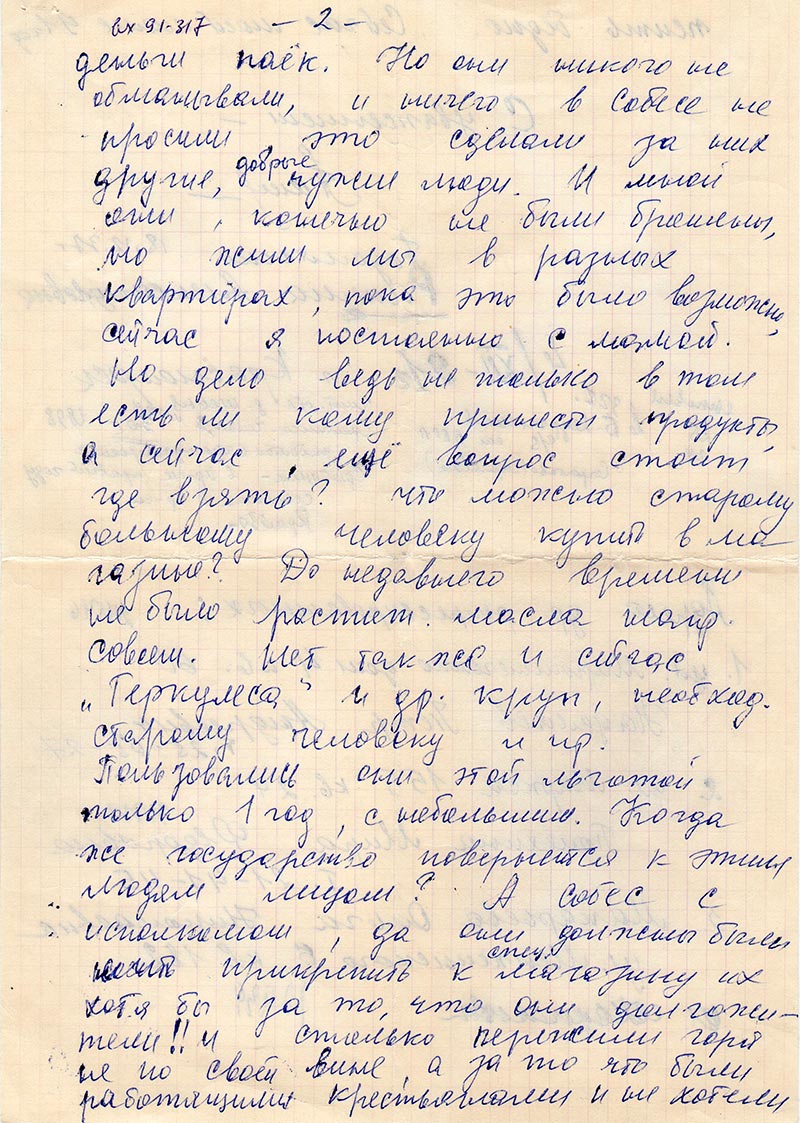 вх 91-317 - 2 -
деньги паёк. Но они никого не
обманывали, и ничего в собесе не
просили, это сделали за них
другие, добрые чужие люди. И мной
они, конечно не были брошены,
но жили мы в разных
квартирах, пока это было возможно,
сейчас я постоянно с мамой.
Но дело ведь не только в том
есть ли кому принести продукты,
а сейчас ещё вопрос стоит
где взять? что можно старому
больному человеку купить в ма-
газине? До недавнего времени
не было растит. масла
совсем. Нет также и сейчас
„Геркулеса" и др. круп, необход.
старому человеку и пр.
Пользовались они этой льготой
только 1 год, с небольшим. Когда
же государство повернется к этим
людям лицом? А собес с
исполкомом, да они должны были
прикрепить к спец. магазину их
хотя бы за то, что они долгожи-
тели!! и столько пережили горя
не по своей вине, а за то что были
работящими крестьянами и не хотели